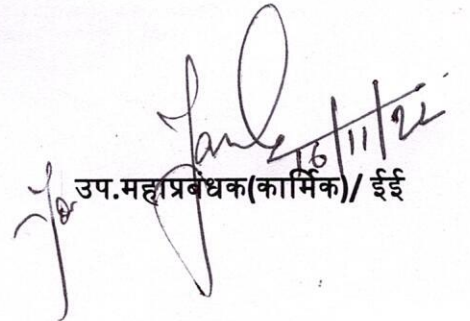 16/11/22
For उप.महाप्रबंधक(कार्मिक)/ ईई